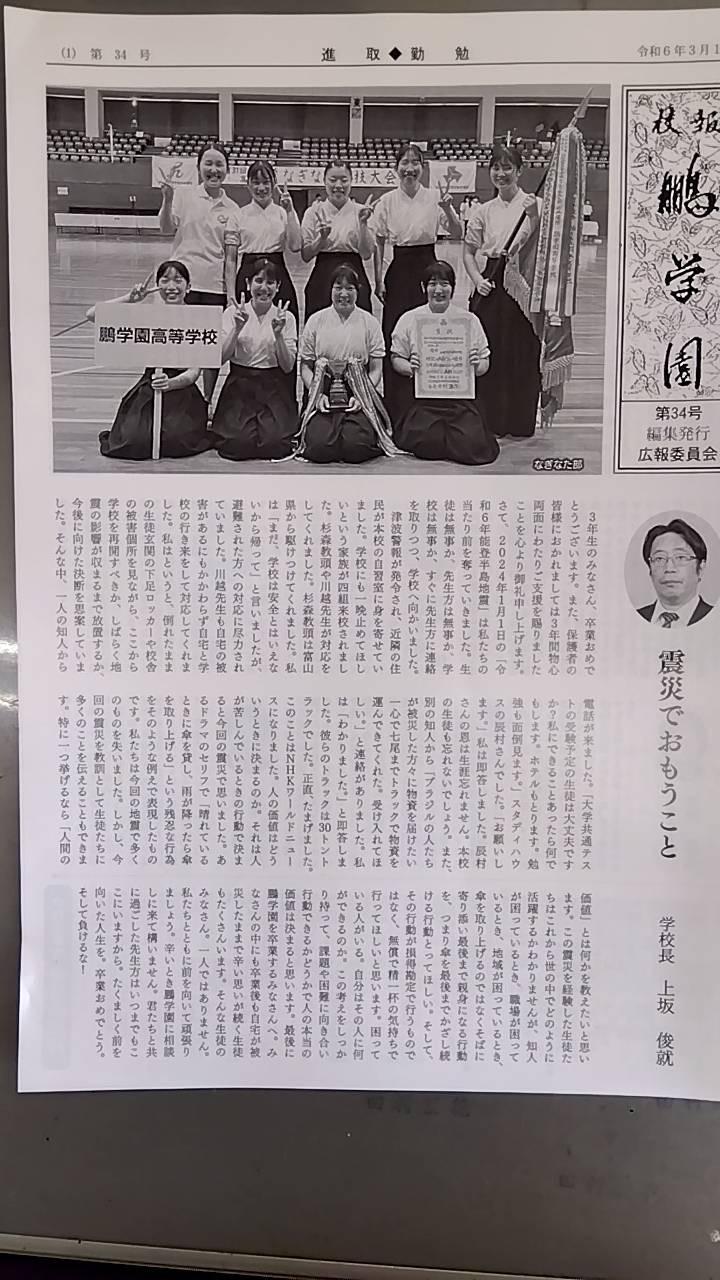 (1) 第 34 号
進 取◆勤 勉
令和6年3月1
校報
鵬学園
第34号
編集発行
広報委員会
なぎなた
技大会
鵬学園高等学校
賞状
なぎなた部
震災でおもうこと
学校長 上坂 俊就
3年生のみなさん、卒業おめで
とうございます。また、保護者の
皆様におかれましては3年間物心
両面にわたりご支援を賜りました
ことを心より御礼申し上げます。
さて、2024年1月1日の「令
和6年能登半島地震」は私たちの
当たり前を奪っていきました。生
徒は無事か、先生方は無事か、学
校は無事か、すぐに先生方に連絡
を取りつつ、学校へ向かいました。
津波警報が発令され、近隣の住
民が本校の自習室に身を寄せてい
ました。学校にも一晩止めてほし
いという家族が四組来校されまし
た。杉森教頭や川越先生が対応を
してくれました。杉森教頭は富山
県から駆けつけてくれました。私
は「まだ、学校は安全とはいえな
いから帰って」と言いましたが、
避難された方への対応に尽力され
ていました。川越先生も自宅の被
害があるにもかかわらず自宅と学
校の行き来をして対応してくれま
した。私はというと、倒れたまま
の生徒玄関の下足ロッカーや校舎
の被害個所を見ながら、ここから
学校を再開すべきか、しばらく地
震の影響が収まるまで放置するか、
今後に向けた決断を思案していま
した。そんな中、一人の知人から
電話が来ました。「大学共通テス
トの受験予定の生徒は大丈夫です
か?私にできることあったら何で
もします。ホテルもとります。勉
強も面倒見ます。」スタディハウ
スの辰村さんでした。「お願いし
ます。」私は即答しました。辰村
さんの恩は生涯忘れません。本校
の生徒も忘れないでしょう。また、
別の知人から「ブラジルの人たち
が被災した方々に物資を届けたい
一心で七尾までトラックで物資を
運んできてくれた。受け入れてほ
しい。」と連絡がありました。私
は「わかりました。」と即答しま
した。彼らのトラックは30トント
ラックでした。正直、たまげました。
このことはNHKワールドニュー
スになりました。人の価値はどう
いうときに決まるのか。それは人
が苦しんでいるときの行動で決ま
ると今回の震災で思いました。あ
るドラマのセリフで「晴れている
ときに傘を貸し、雨が降ったら傘
を取り上げる」という残忍な行為
をそのような例えで表現したもの
です。私たちは今回の地震で多く
のものを失いました。しかし、今
回の震災を教訓として生徒たちに
多くのことを伝えることもできま
す。特に一つ挙げるなら「人間の
価値」とは何かを教えたいと思い
ます。この震災を経験した生徒た
ちはこれから世の中でどのように
活躍するかわかりませんが、知人
が困っているとき、職場が困って
いるとき、地域が困っているとき、
傘を取り上げるのではなくそばに
寄り添い最後まで親身になる行動
を、つまり傘を最後までかざし続
ける行動とってほしい。そして、
その行動が損得勘定で行うもので
はなく、無償で精一杯の気持ちで
行ってほしいと思います。困って
いる人がいる。自分はその人に何
ができるのか。この考えをしっか
り持って、課題や困難に向き合い
行動できるかどうかで人の本当の
価値は決まると思います。最後に
鵬学園を卒業するみなさんへ。み
なさんの中にも卒業後も自宅が被
災したままで辛い思いが続く生徒
もたくさんいます。そんな生徒の
みなさん。一人ではありません。
私たちとともに前を向いて頑張り
ましょう。辛いとき鵬学園に相談
しに来て構いません。君たちと共
に過ごした先生方はいつまでもこ
こにいますから。たくましく前を
向いた人生を。卒業おめでとう。
そして負けるな!